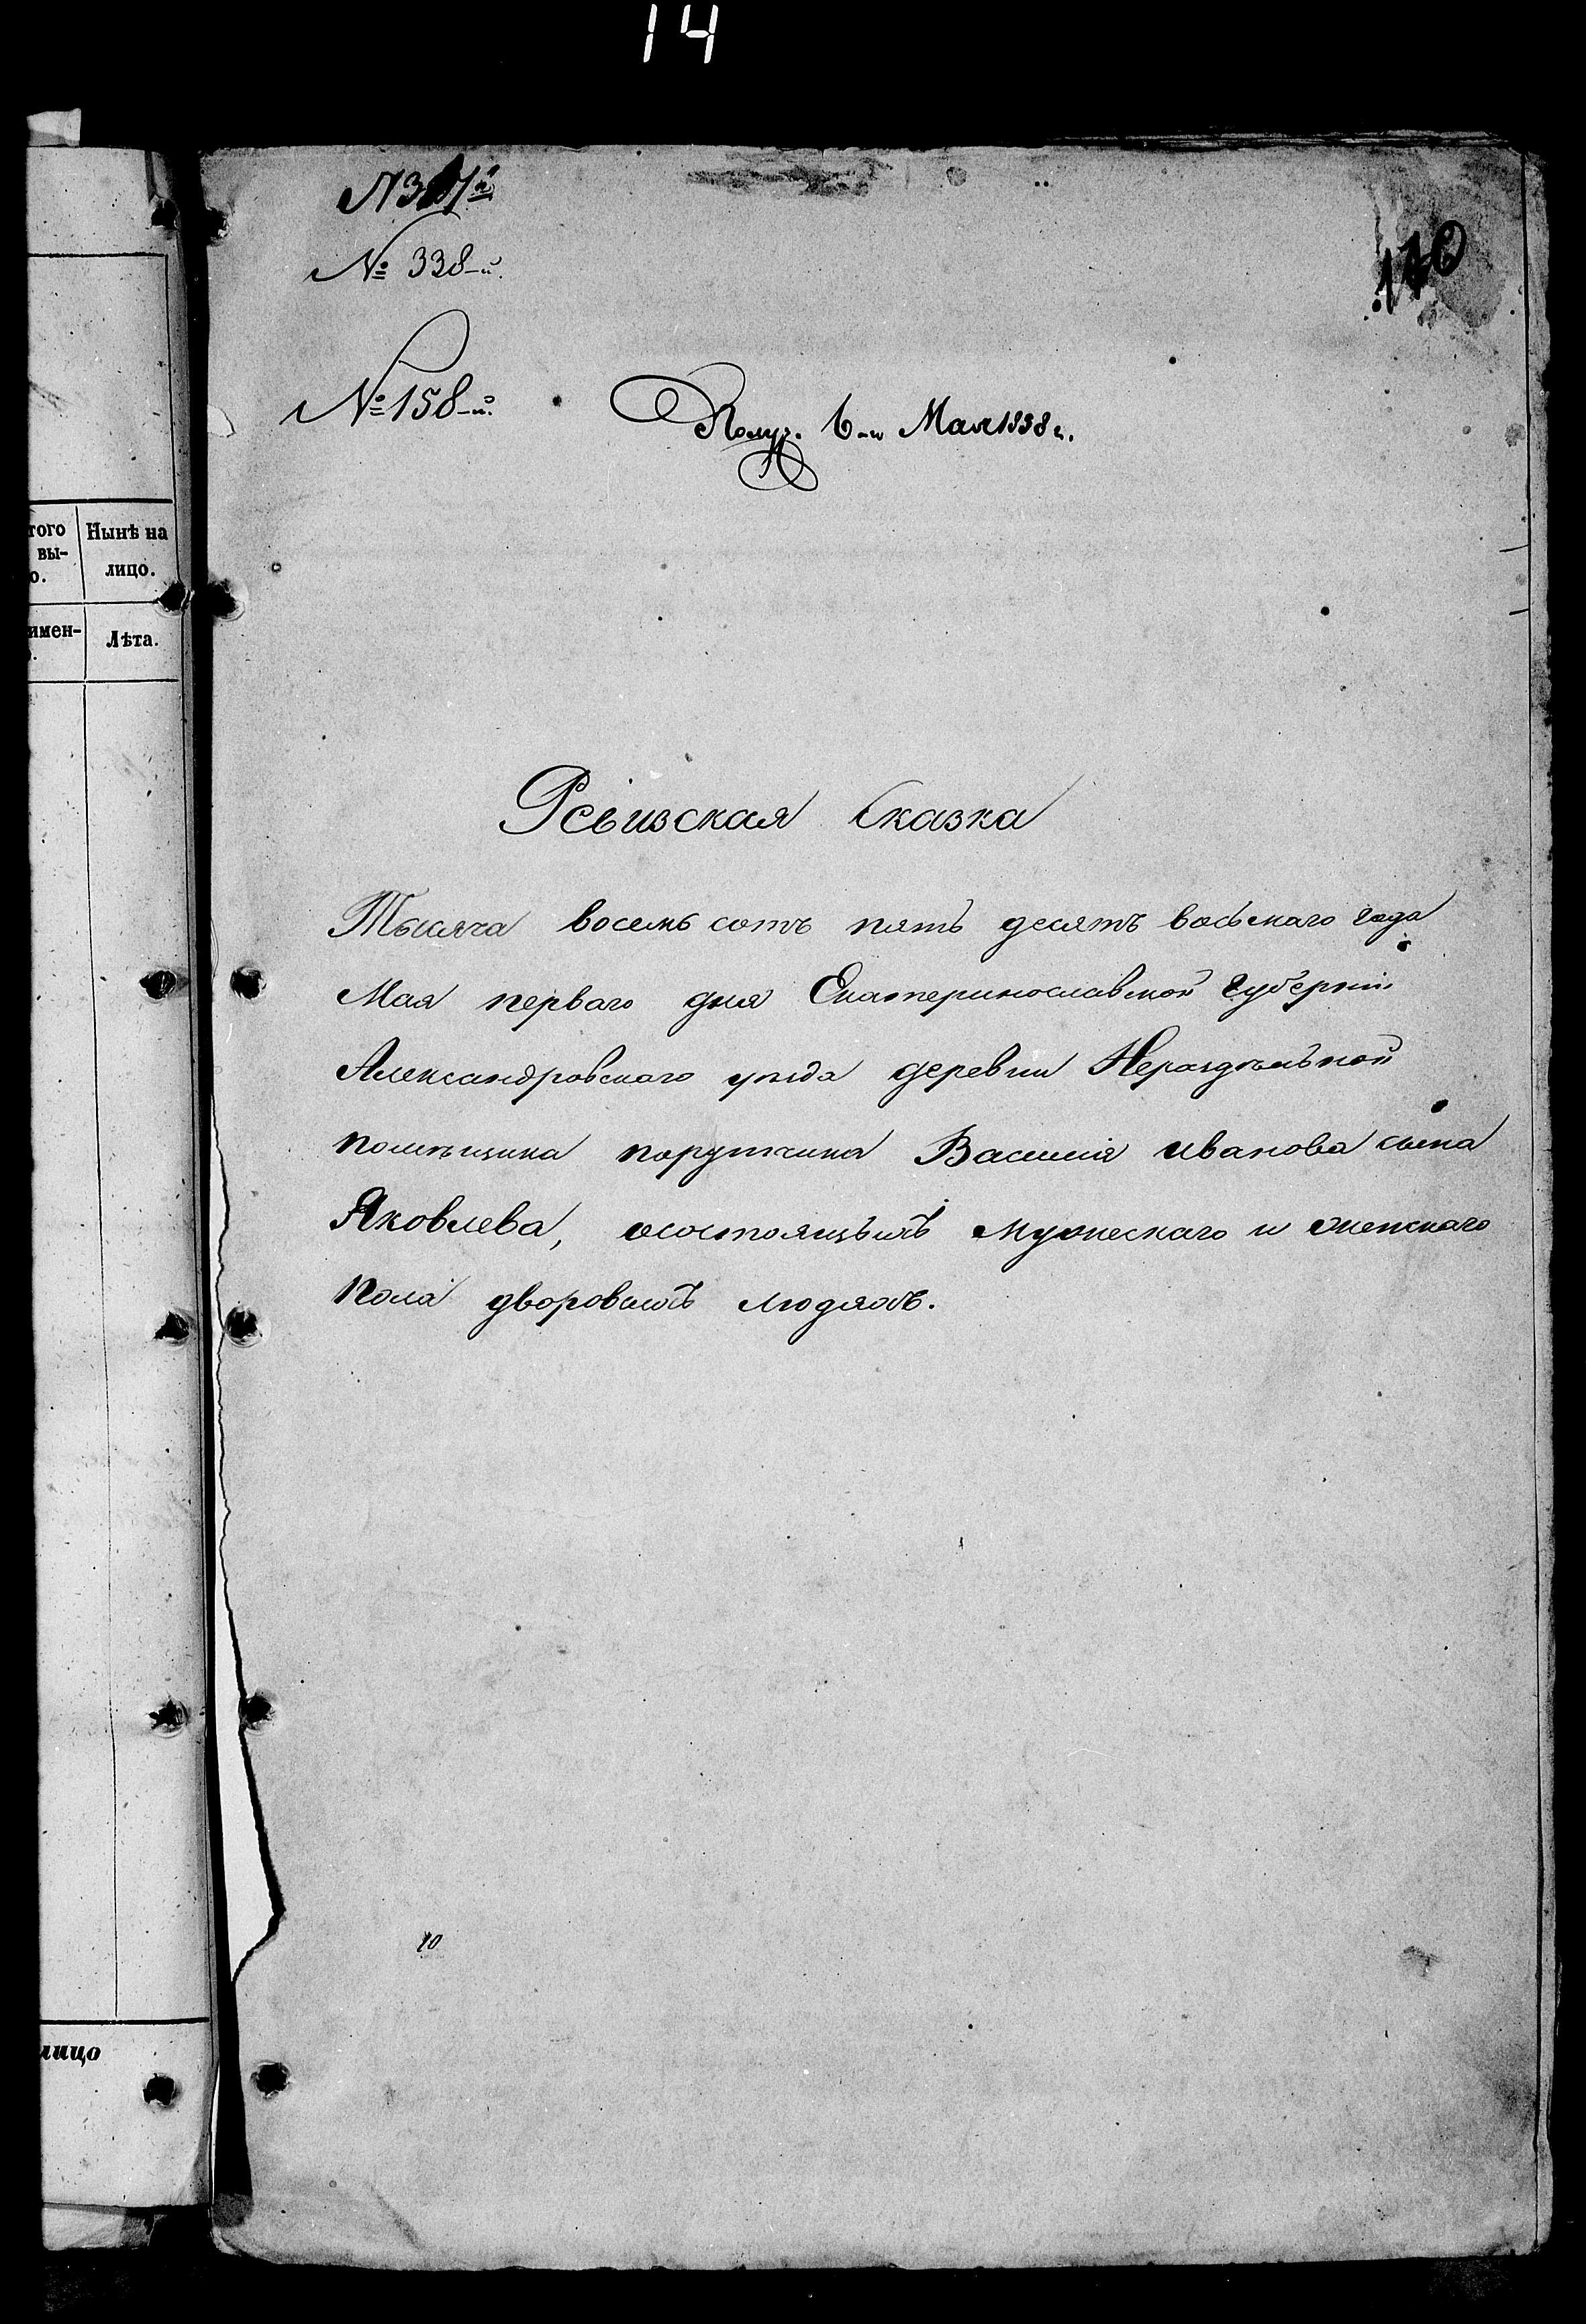 14
№ 338-й.
№ 158-й.
Получ. 6-го Мая 1858 г.
того
вы-
о.
Нынѣ на
лицо.
имен-
Лѣта.
Ревизская Сказка
Тысяча восемь сотъ пять десятъ восьмаго года
Мая перваго дня Екатеринославской Губерніи
Александровскаго уѣзда деревни Нераздѣльной
помѣщика порутчика Василія Иванова сына
Яковлева, осостоящыхъ мужескаго и женскаго
пола дворовыхъ людяхъ.
10
лицо